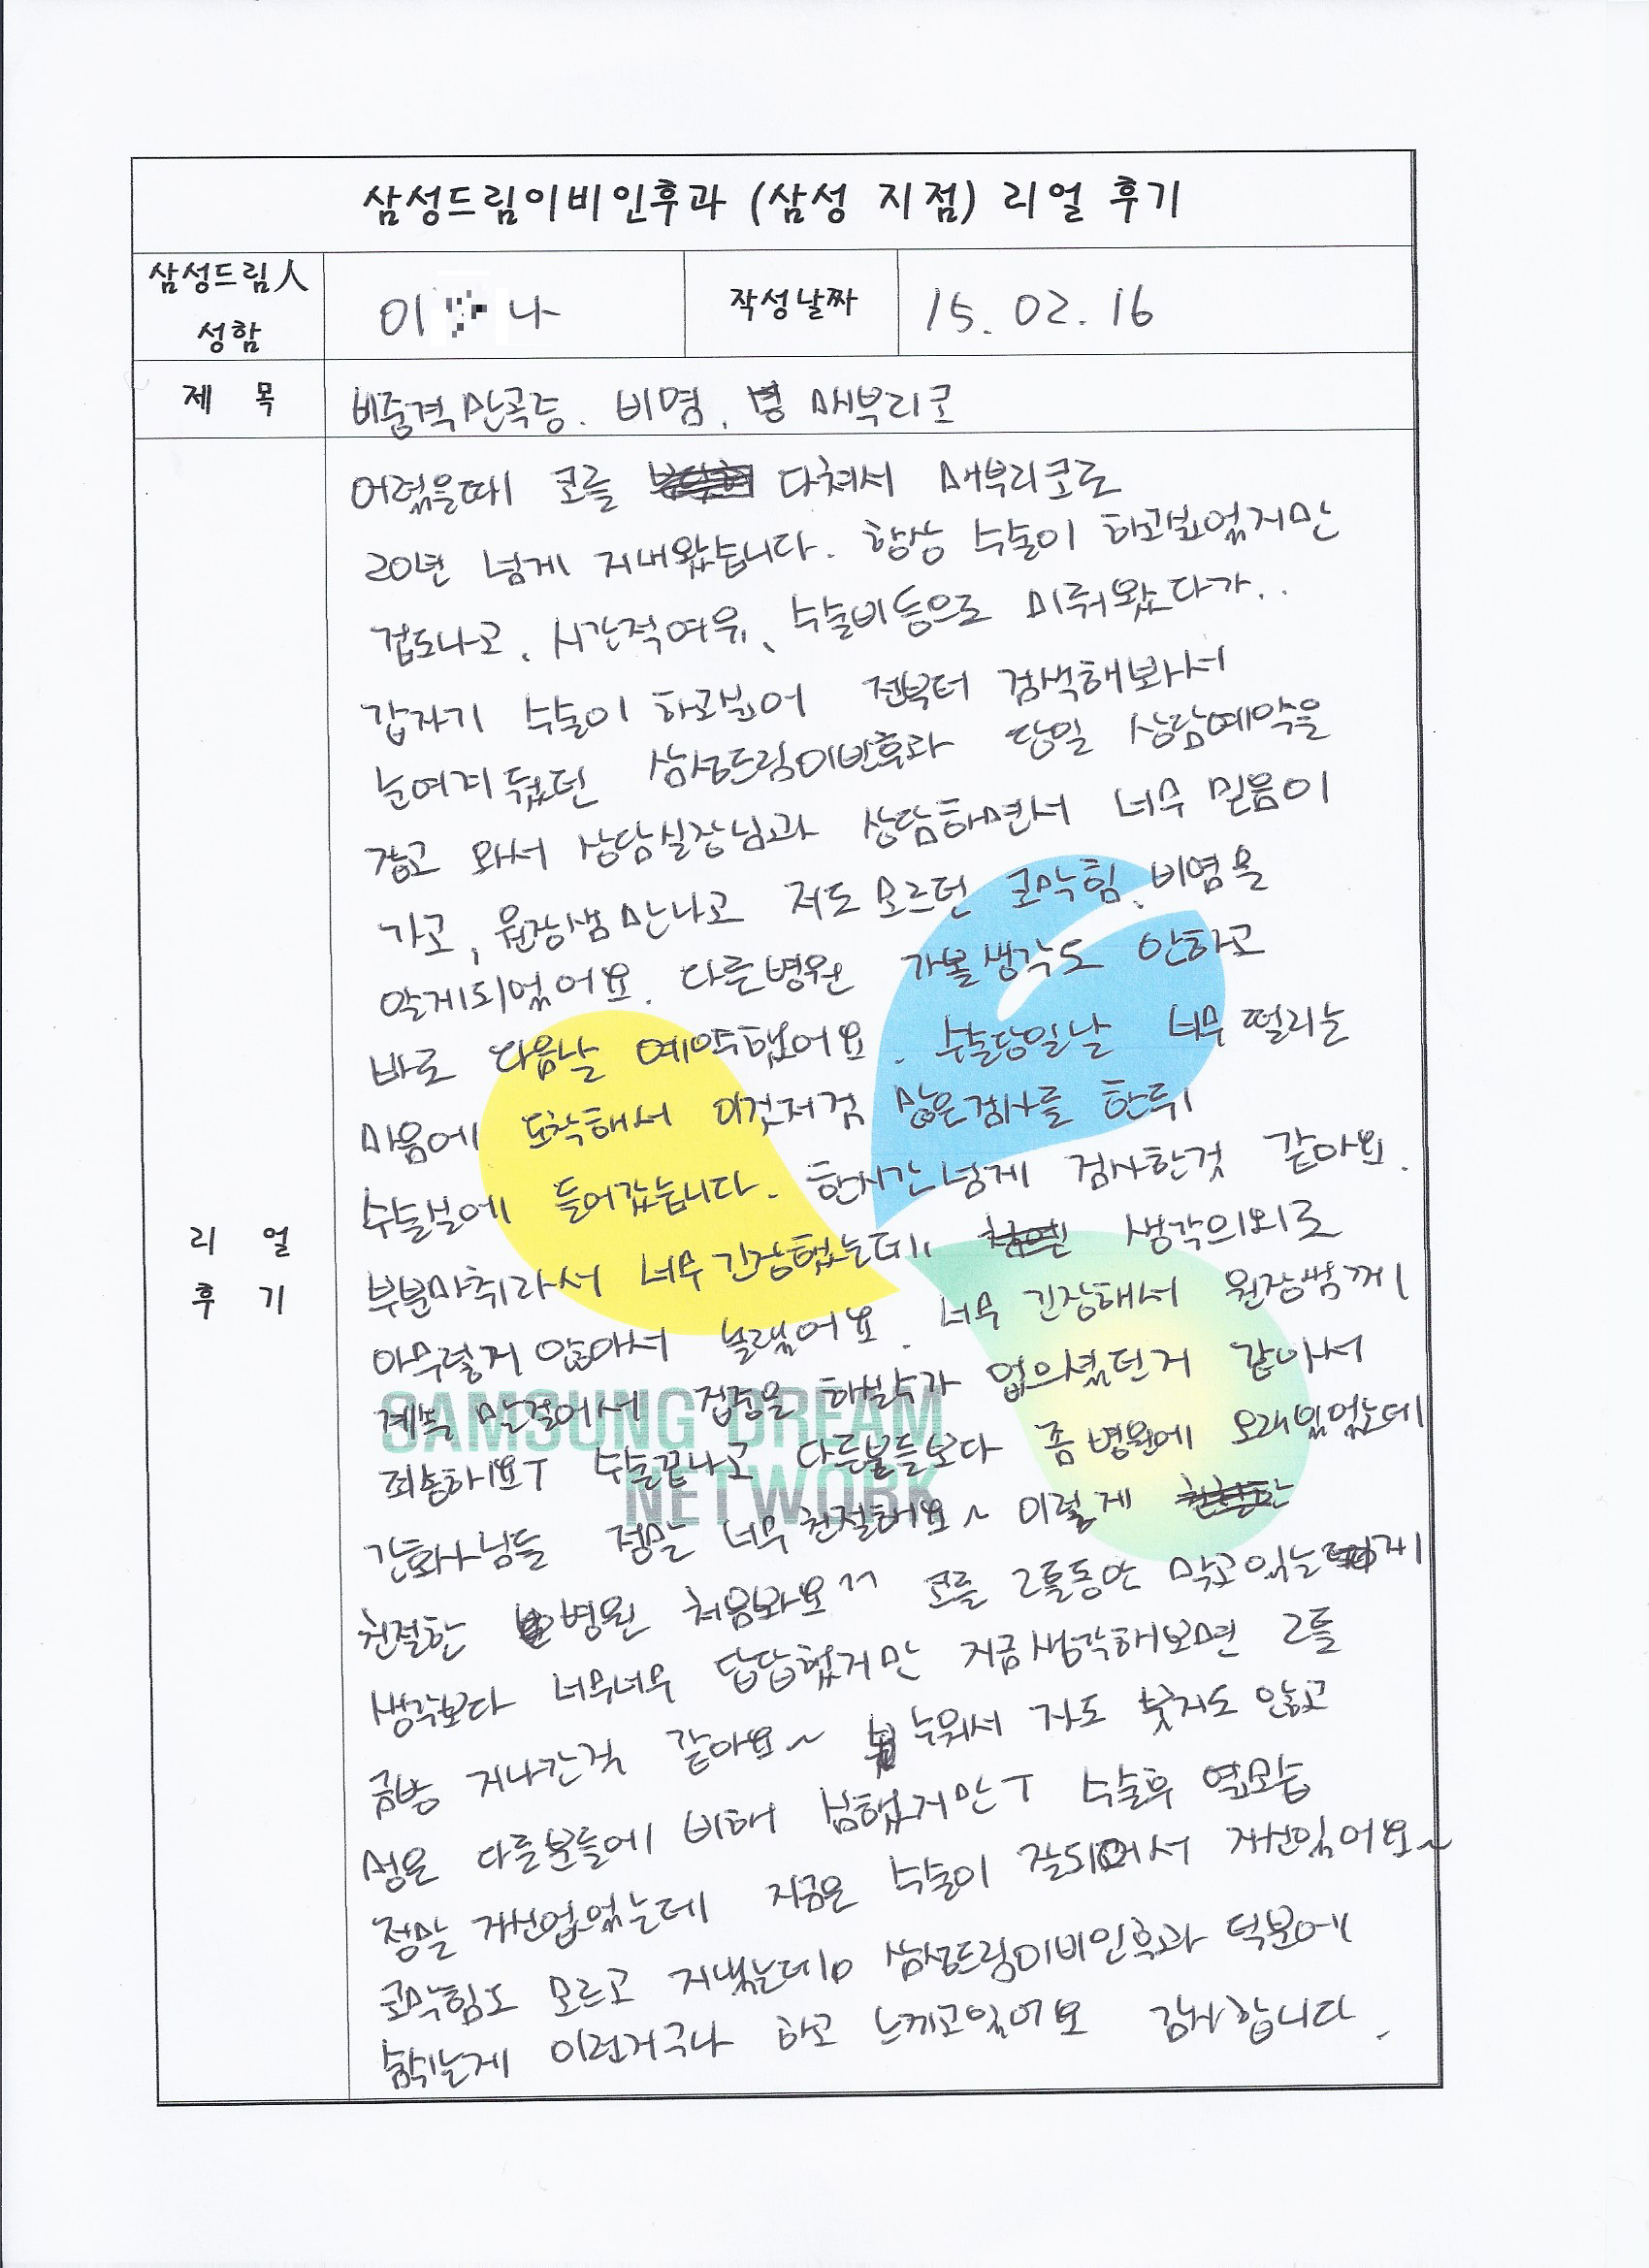 삼성드림이비인후과 (삼성 지점) 리얼 후기
삼성드림人
성함
이 나
작성날짜
15.02.16
제 목
비중격만곡증. 비염. 매부리코
어렸을때 코를 다쳐서 매부리코로
20년 넘게 지내왔습니다. 항상 수술이 하고싶었지만
겁도나고, 시간적여유, 수술비등으로 미뤄왔다가..
갑자기 수술이 하고싶어 전부터 검색해봐서
눈여겨 뒀던 삼성드림이빈후과 당일 상담예약을
잡고 와서 상담실장님과 상담하면서 너무 믿음이
가고, 원장쌤만나고 저도 모르던 코막힘, 비염을
알게되었어요. 다른병원 가볼생각도 안하고
바로 다음날 예약했어요. 수술당일날 너무 떨리는
마음에 도착해서 이것저것 많은검사를 한뒤
수술실에 들어갔습니다. 한시간넘게 검사한것 같아요.
부분마취라서 너무긴장했는데, 생각의외로
아무렇지 않아서 놀랬어요. 너무 긴장해서 원장쌤께
계속 말걸어서 집중을 하실수가 없으셨던거 같아서
죄송하네요ㅜ 수술끝나고 다른분들보다 좀 병원에 오래있었는데
간호사님들 정말 너무친절해요~ 이렇게
친절한 병원 처음봐요^^ 코를 2틀동안 막고있는게
생각보다 너무너무 답답했지만 지금생각해보면 2틀
금방 지나간것 같아요~ 누워서 자도 붓지도 않고
멍은 다른분들에 비해 심했지만ㅜ 수술후 옆모습
정말 자신없었는데 지금은 수술이 잘되어서 자신있어요~
코막힘도 모르고 지냈는데 삼성드림이비인후과 덕분에
숨쉬는게 이런거구나 하고 느끼고있어요 감사합니다.
리 얼
후 기
SAMSUNG DREAM
NETWORK